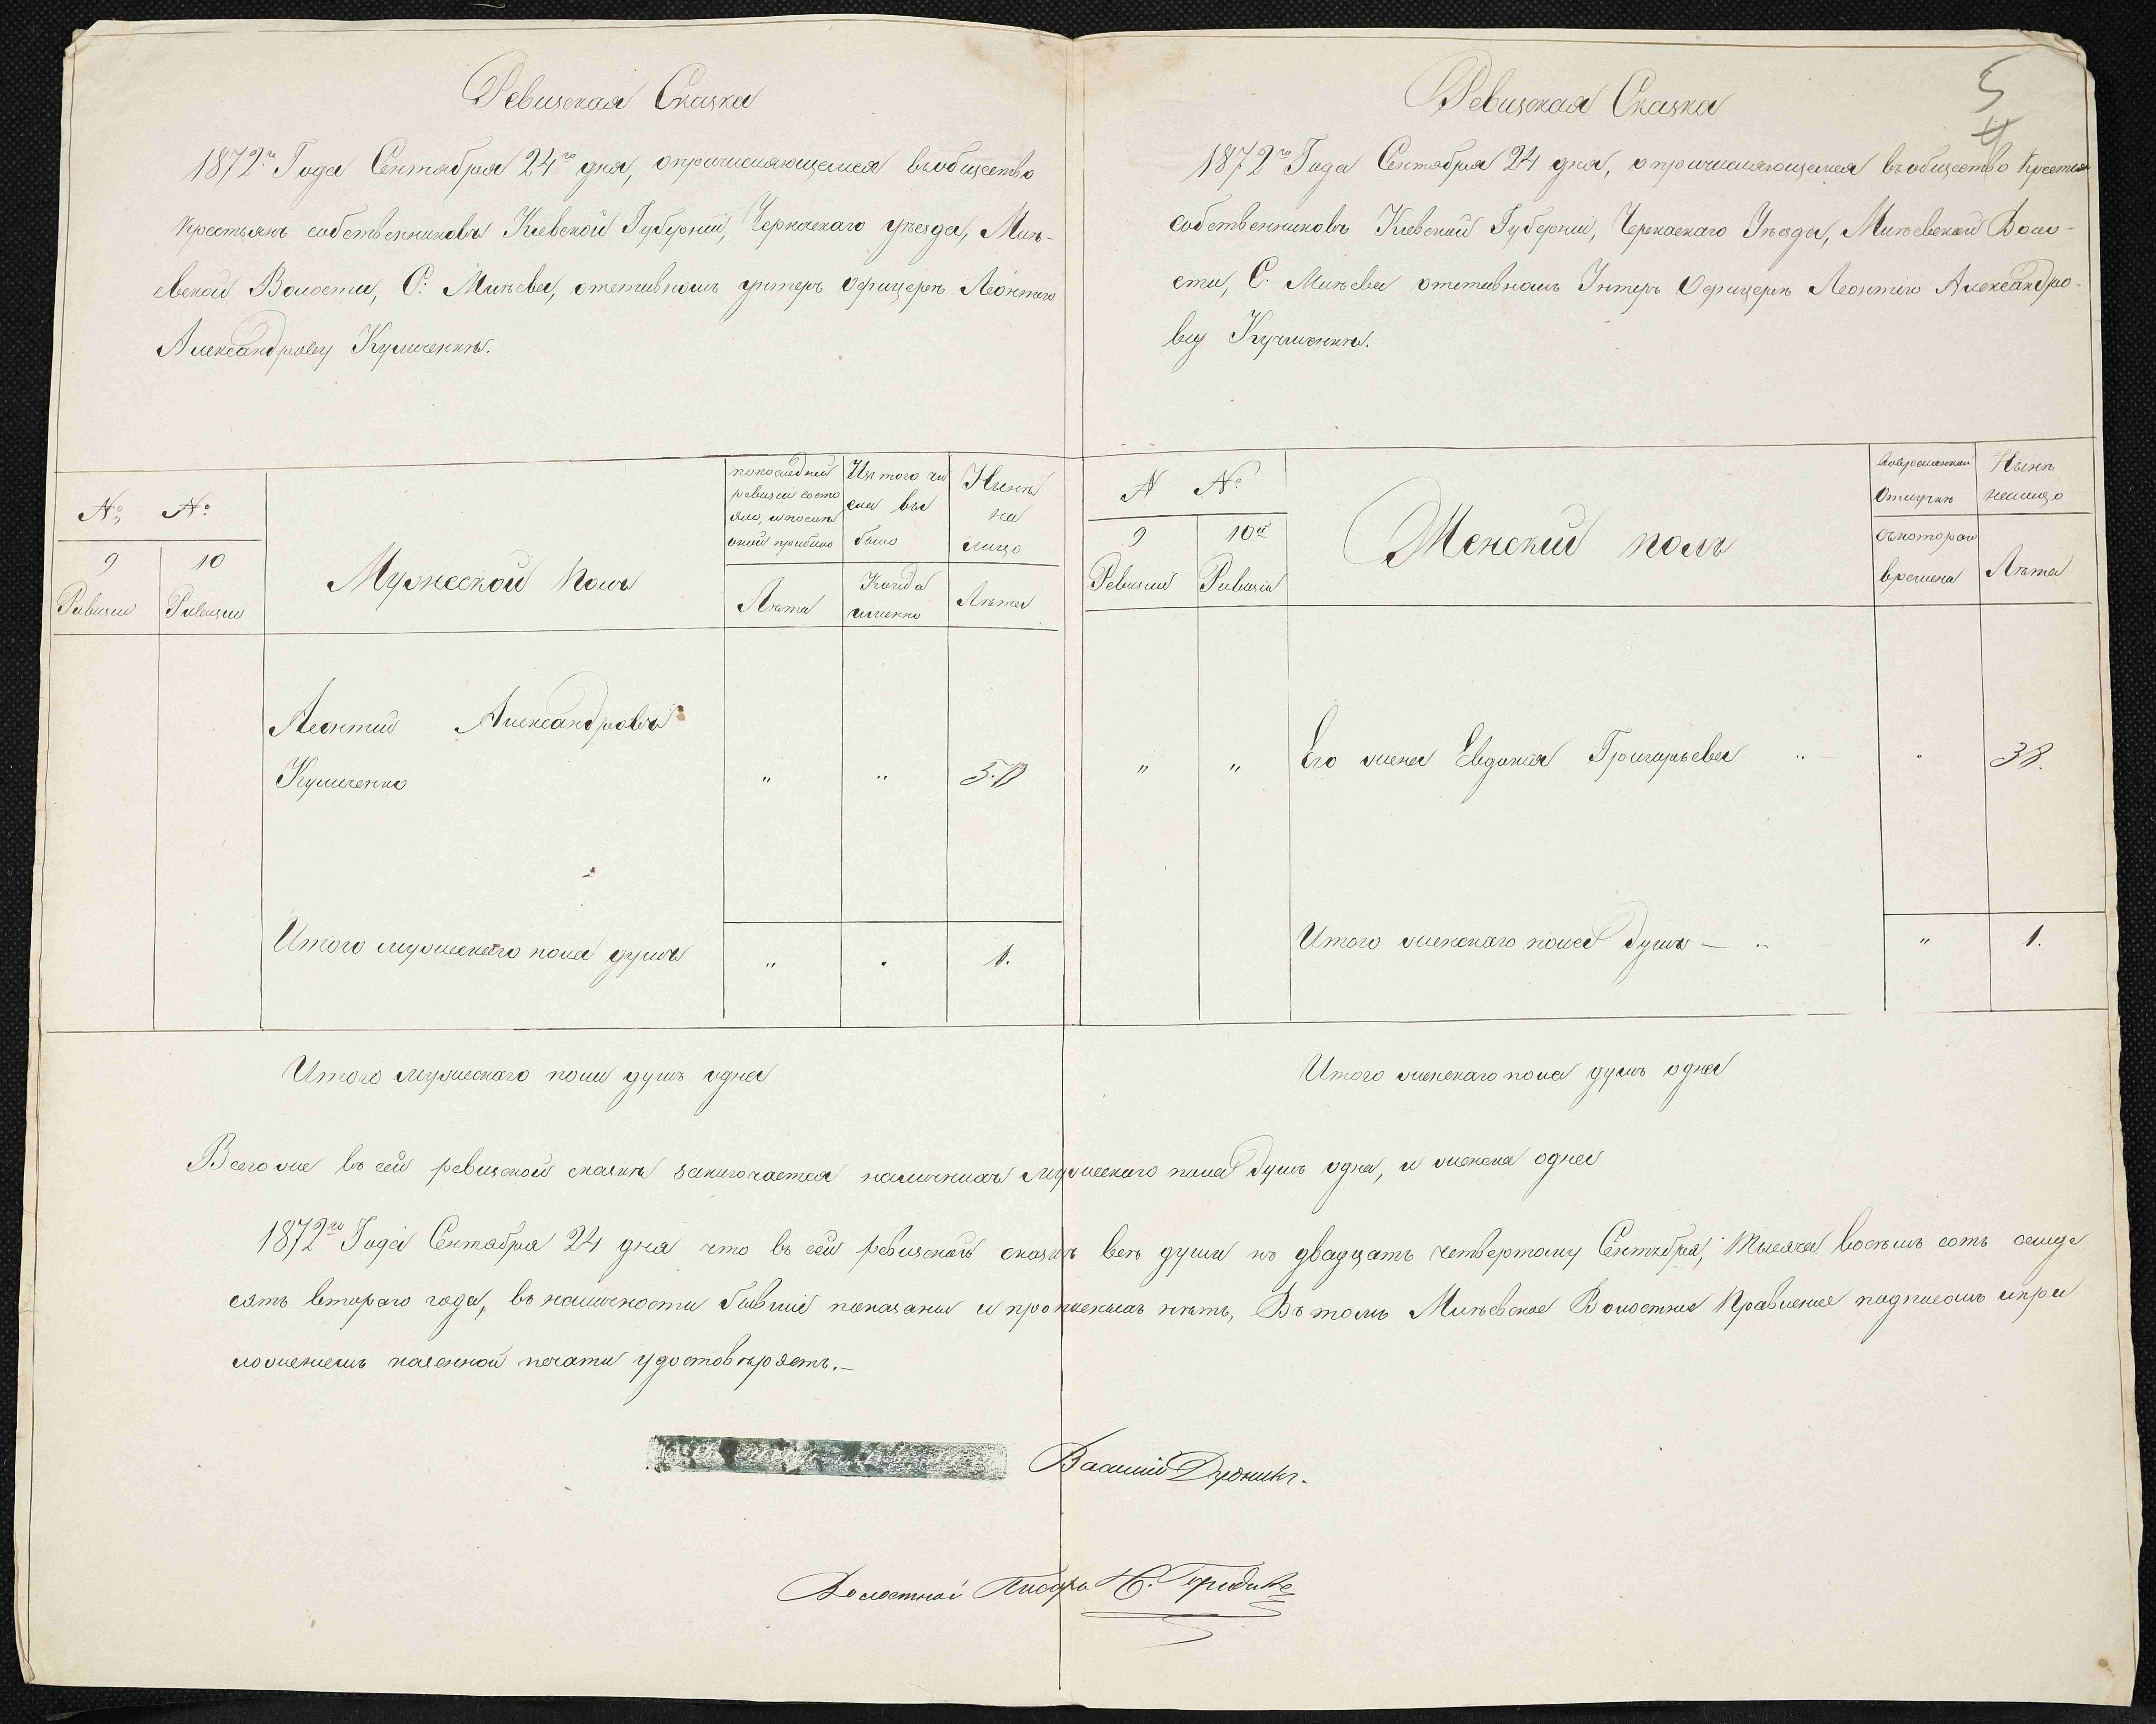 Ревизская Сказка
1872го Года Сентября 24го дня, опричисляющемся въобщество
крестьянъ собственниковъ Киевской Губерніи, Черкаскаго уѣзда, Млѣ-
евской Волости, С: Млѣева, отставномъ унтеръ офицерѣ Леонтію
Александрову Куличенкѣ.
№ №
9 10
Ривизіи Ривизіи
Мужеской полъ
Лѣта
Изъ того чи
сла вы
было
Когда
именно
Нынѣ
на
лицо
Лѣта
Леонтий Александровъ
Куличенко " " 50
Итого мужескаго пола душъ " " 1.
Итого мужескаго пола душъ одна
5
4
Ревизская Сказка
1872го Года Сентября 24 дня, опричисляющемся въобщество крестьян
собственниковъ Киевской Губерніи, Черкаскаго Уѣзда, Млѣевской Воло-
сти, С. Млѣева отставномъ Унтеръ Офицерѣ Леонтію Александро-
ву Куличенкѣ.
№ №
9 10й
Ревизіи Ривизіи
Женский полъ
Вовременной
Отлучкѣ
съкотораго
времена
Нынѣ
налицо
Лѣта
" " Его жена Евдокія Григорьева " " 38.
Итого женскаго пола душъ — " " 1.
Итого женскаго пола душъ одна
Всего же въ сей ревизской сказкѣ заключается наличныхъ мужескаго пола душъ одна, и женска одна
1872го Года Сентября 24 дня что въ сей ревизской сказкѣ всѣ души къ двадцать четвертому Сентября, тысяча восемь сотъ семде
сятъ втораго года, въ наличности бывшіе показаны и прописныхъ нѣтъ, Въ томъ Млѣевское Волостное Правленіе подписомъ ипри
ложенемъ казенной печати удостовѣряетъ.—
Василий
Волостной Писарь